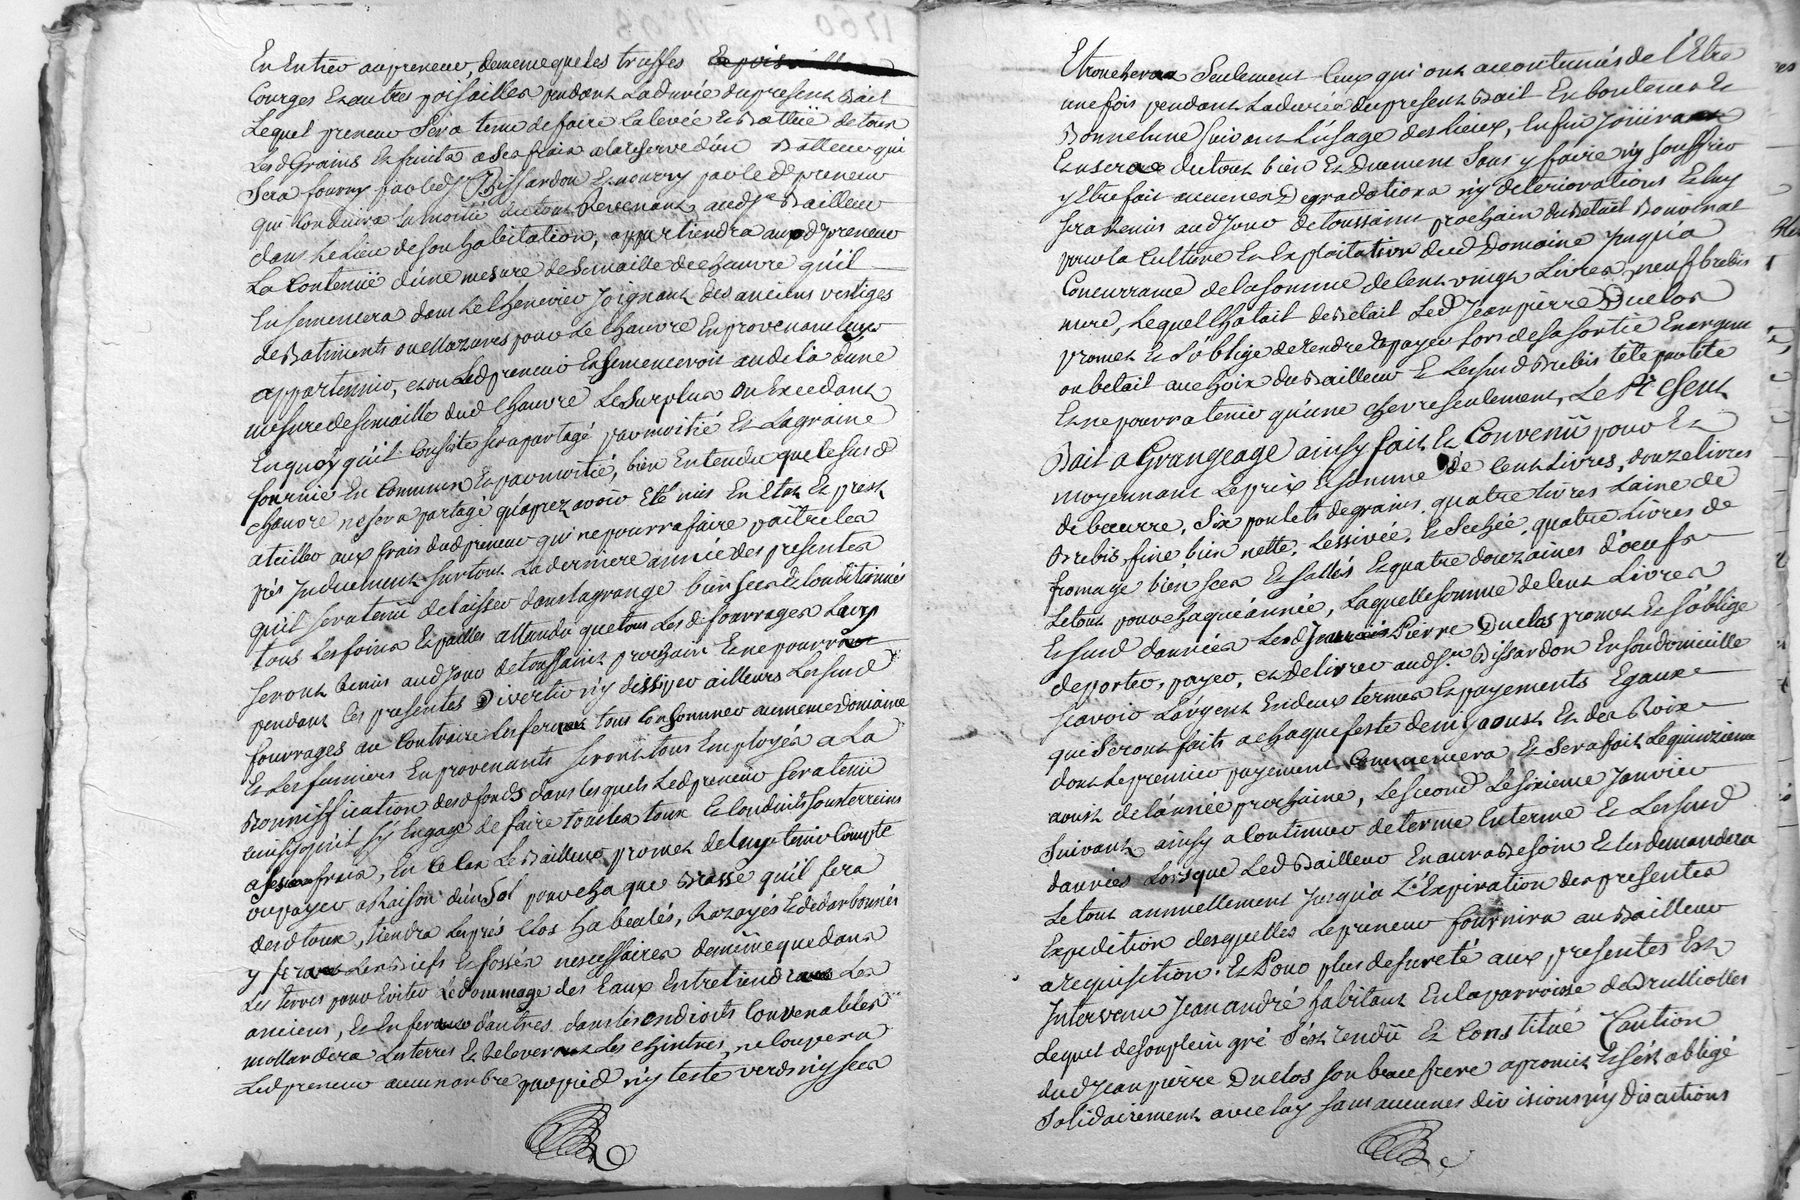 En Entier au preneur, de meme que les truffes
Courges Et autres poisailles pendant La durée du present Bail
Lequel preneur Sera tenu de faire La levée Et Battüe de tous
Lesd Grains Et fruits a Ses frais a la reserve d'un Batteur qui
Sera fourny par led Sr Bissardon Et nourry par le d preneur
qui Conduira la moitié du tout Revenant aud Sr Bailleur
dans Le Lieu de Son habitation, appartiendra aud preneur
La Contenüe d'une mesure de Semaille de Chanvre qu'il
Ensemencera dans Le Chenevier Joignant des anciens vestiges
de Batiments ou Mazures pour Le Chanvre En provenant luy
appartenir, et ou Led preneur En Semenceroit au dela d'une
mesure de Semaille dud Chanvre Le Surplus ou Excedant
En quoy qu'il Consiste Sera partagé par moitié Et La graine
fournie En Commun Et par moitié, bien Entendu que le Susd
Chanvre ne Sera partagé qu'aprez avoir Eté mis En Etat Et prest
a teiller aux frais dud preneur qui ne pourra faire paître les
prés Induement Surtout La derniere année des presentes
qu'il Sera tenü de laisser dans la grange bien Secs Et Conditionnés
tous Les foins Et pailles attendu que tous Lesd fourrages Luy
Seront Remis aud Jour de toussaint prochain Et ne pourra
pendant les presentes Divertir n'y dissiper ailleurs Lesusd
fourrages au Contraire Les fera tous Consommer au meme Domaine
Et Les fumiers En provenants Seront tous Employés a La
Bonniffication desd fonds dans lesquels Led preneur Sera tenü
ainsy qu'il S'y Engage de faire toutes toux Et Conduits Souterreins
a Ses frais, En Ce Cas Le Bailleur promet de luy tenir Compte
ou payer a Raison d'un Sol pour chaque Brasse qu'il fera
desd toux, tiendra Les prés Clos habealés, Razayés Et dedarbonnés
y fera Les Biefs Et fossés necessaires de même que dans
Les terres pour Eviter Le dommage des Eaux Entretiendra Les
anciens, Et En fera d'autres dans les endroits Convenables
mottardera Les terres Et Relevera Les Chintres, ne Coupera
Led preneur aucun arbre par pied n'y teste verds n'y Secs
Etronchera Seulement Ceux qui ont accoutumés de l'Etre
une fois pendant La durée du present Bail En bon tems Et
Bonne Lune Suivant L'usage des Lieux, Enfin Joüira
Et usera du tout bien Et Duement Sans y faire n'y Souffrir
y Etre fait aucunes Degradations n'y deteriorations Et luy
Sera Remis aud Jour de toussaint prochain du Betail Bouvinal
pour la Culture Et Exploitation dud Domaine Jusqu'a
Concurrance de la Somme de Cent vingt Livres, neuf brebis
mere, Lequel Chatail de Betail Led Jean pierre Duclos
promet Et S'oblige de rendre Et payer Lors de Sa Sortie En argent
ou betail au choix du Bailleur Et Lesusd Brebis tête par tête
Et ne pourra tenir qu'une Chevre Seulement, Le Present
Bail a Grangeage ainsy fait Et Convenü pour Et
moyennant Le prix Et Somme de Cent Livres, douze livres
de beurre, Six poulets de grains, quatre livres Laine de
Brebis, fine bien nette, Lessivée, Et Sechée, quatre Livres de
fromage bien Secs Et Sallés Et quatre douzaines d'oeufs
Le tout pour chaque année, Laquelle Somme de Cent Livres
Et Susd danrées Led Jean Pierre Duclos promet Et S'oblige
de porter, payer, et delivrer aud Sr Bissardon En Son domicille
Scavoir L'argent En deux termes Et payements Egaux
qui Seront faits a chaque feste de my aoust Et des Roix
dont Le premier payement Commencera Et Sera fait Le quinzieme
aoust de l'année prochaine, Le Second Le Sixieme Janvier
Suivant ainsy a Continuer de terme En terme Et Les Susd
danrées Lorsque Led Bailleur En aura Besoin Et les demandera
Le tout annuellement Jusqu'a L'Expiration des presentes
Expedition desquelles Le preneur fournira au Bailleur
a requisition. Et Pour plus de Sureté aux presentes Est
Intervenu Jean andré habitant En la parroisse de Brullioles
Lequel de Son plein gré S'est rendü Et Constitué Caution
dud Jean pierre Duclos Son beau frere a promit Et S'est obligé
Solidairement avec luy Sans aucunes divisions n'y Discutions